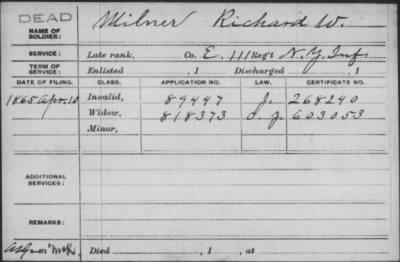 DEAD
NAME OF SOLDIER: Milner Richard W.
SERVICE: Late rank, Co. E, 111 Regt N.Y. Inf
TERM OF SERVICE: Enlisted , 1 Discharged , 1
DATE OF FILING. CLASS. APPLICATION NO. LAW. CERTIFICATE NO.
1865 Apr. 10 Invalid, 89447 J. 268240
Widow, 818373 O.J. 603053
Minor,
ADDITIONAL SERVICES:
REMARKS:
Died , 1 , at